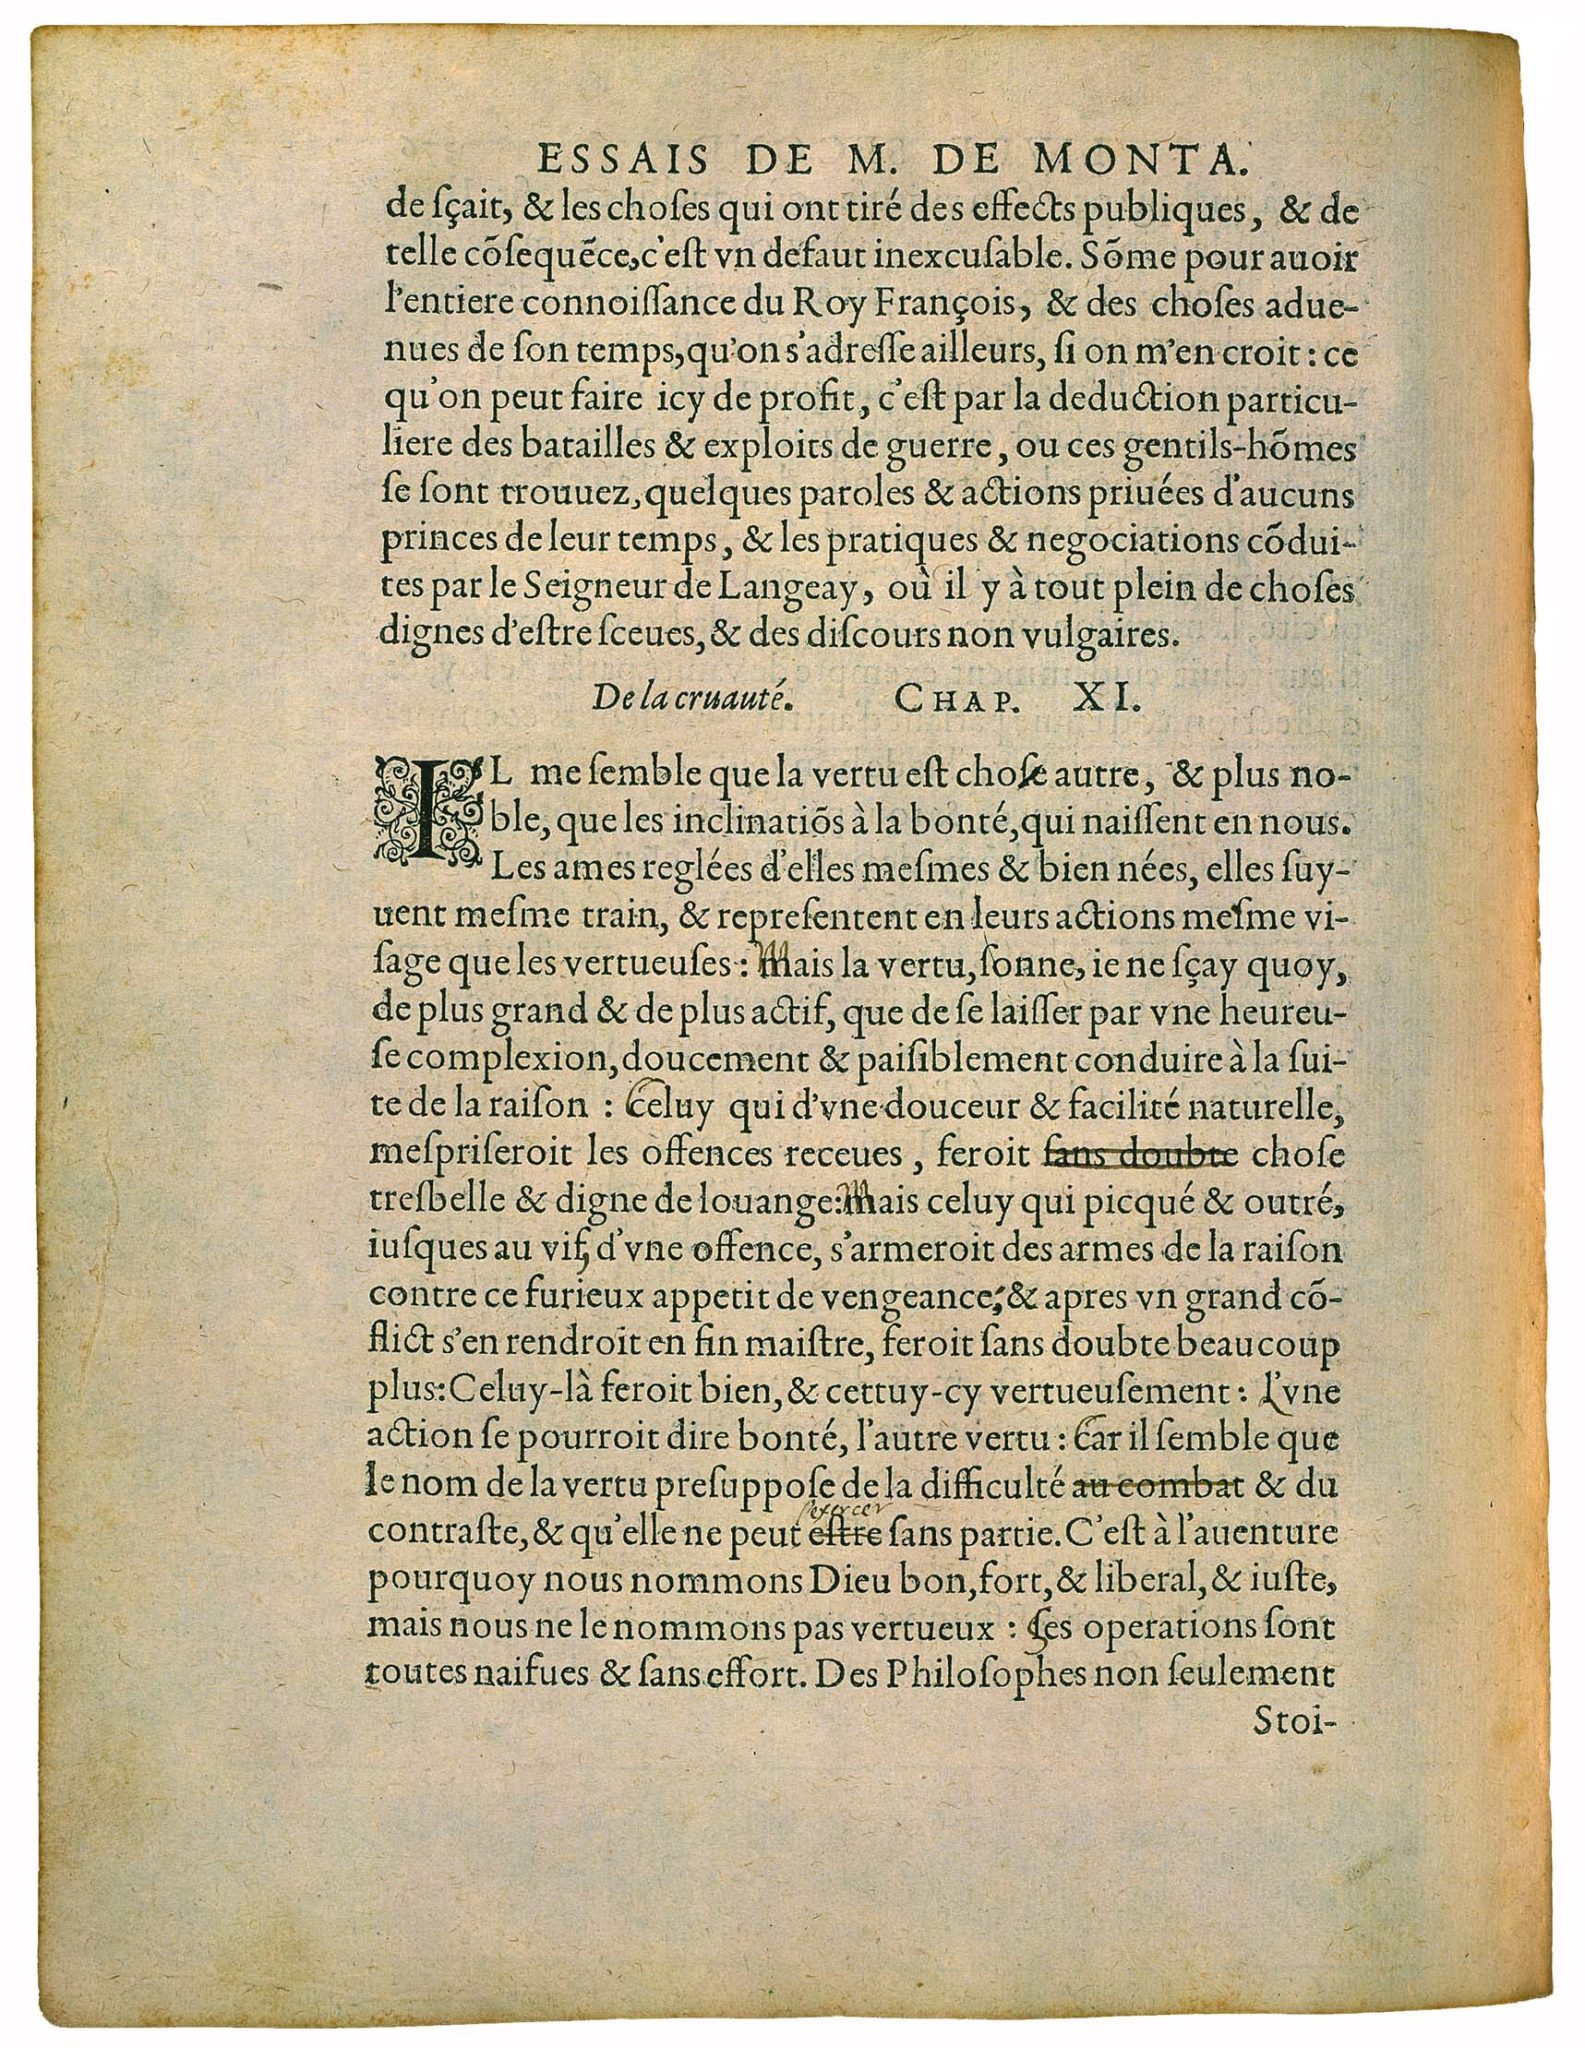 ESSAIS DE M. DE MONTA.
de sçait, & les choſes qui ont tiré des effects publiques, & de
telle cõſequẽce, c'eſt vn defaut inexcuſable. Sõme pour auoir
l'entiere connoiſſance du Roy François, & des choſes adue-
nues de ſon temps, qu'on s'adreſſe ailleurs, ſi on m'en croit : ce
qu'on peut faire icy de profit, c'eſt par la deduction particu-
liere des batailles & exploits de guerre, ou ces gentils-hõmes
ſe ſont trouuez, quelques paroles & actions priuées d'aucuns
princes de leur temps, & les pratiques & negociations cõdui-
tes par le Seigneur de Langeay, où il y à tout plein de choſes
dignes d'eſtre ſceues, & des diſcours non vulgaires.
De la cruauté. CHAP. XI.
IL me ſemble que la vertu eſt choſe autre, & plus no-
ble, que les inclinatiõs à la bonté, qui naiſſent en nous.
Les ames reglées d'elles meſmes & bien nées, elles ſuy-
uent meſme train, & repreſentent en leurs actions meſme vi-
ſage que les vertueuſes : Mais la vertu, ſonne, ie ne ſçay quoy,
de plus grand & de plus actif, que de ſe laiſſer par vne heureu-
ſe complexion, doucement & paiſiblement conduire à la ſui-
te de la raiſon : Celuy qui d'vne douceur & facilité naturelle,
meſpriſeroit les offences receues, feroit ſans doubte choſe
treſbelle & digne de louange: Mais celuy qui picqué & outré,
iuſques au vif, d'vne offence, s'armeroit des armes de la raiſon
contre ce furieux appetit de vengeance, & apres vn grand cõ-
flict s'en rendroit en fin maiſtre, feroit ſans doubte beaucoup
plus: Celuy-là feroit bien, & cettuy-cy vertueuſement : L'vne
action ſe pourroit dire bonté, l'autre vertu : Car il ſemble que
le nom de la vertu preſuppoſe de la difficulté au combat & du
s'exercer
contraſte, & qu'elle ne peut eſtre ſans partie. C'eſt à l'auenture
pourquoy nous nommons Dieu bon, fort, & liberal, & iuſte,
mais nous ne le nommons pas vertueux : Ses operations ſont
toutes naifues & ſans effort. Des Philoſophes non ſeulement
Stoi-